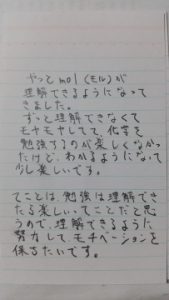 やっとmol(モル)が
理解できるようになって
きました。
ずっと理解できなくて
モヤモヤしてて、化学を
勉強するのが楽しくなかっ
たけど、わかるようになって
少し楽しいです。
てことは、勉強は理解でき
たる楽しいてことだと思
うので、理解できるように
努力してモチベーションを
保ちたいです。